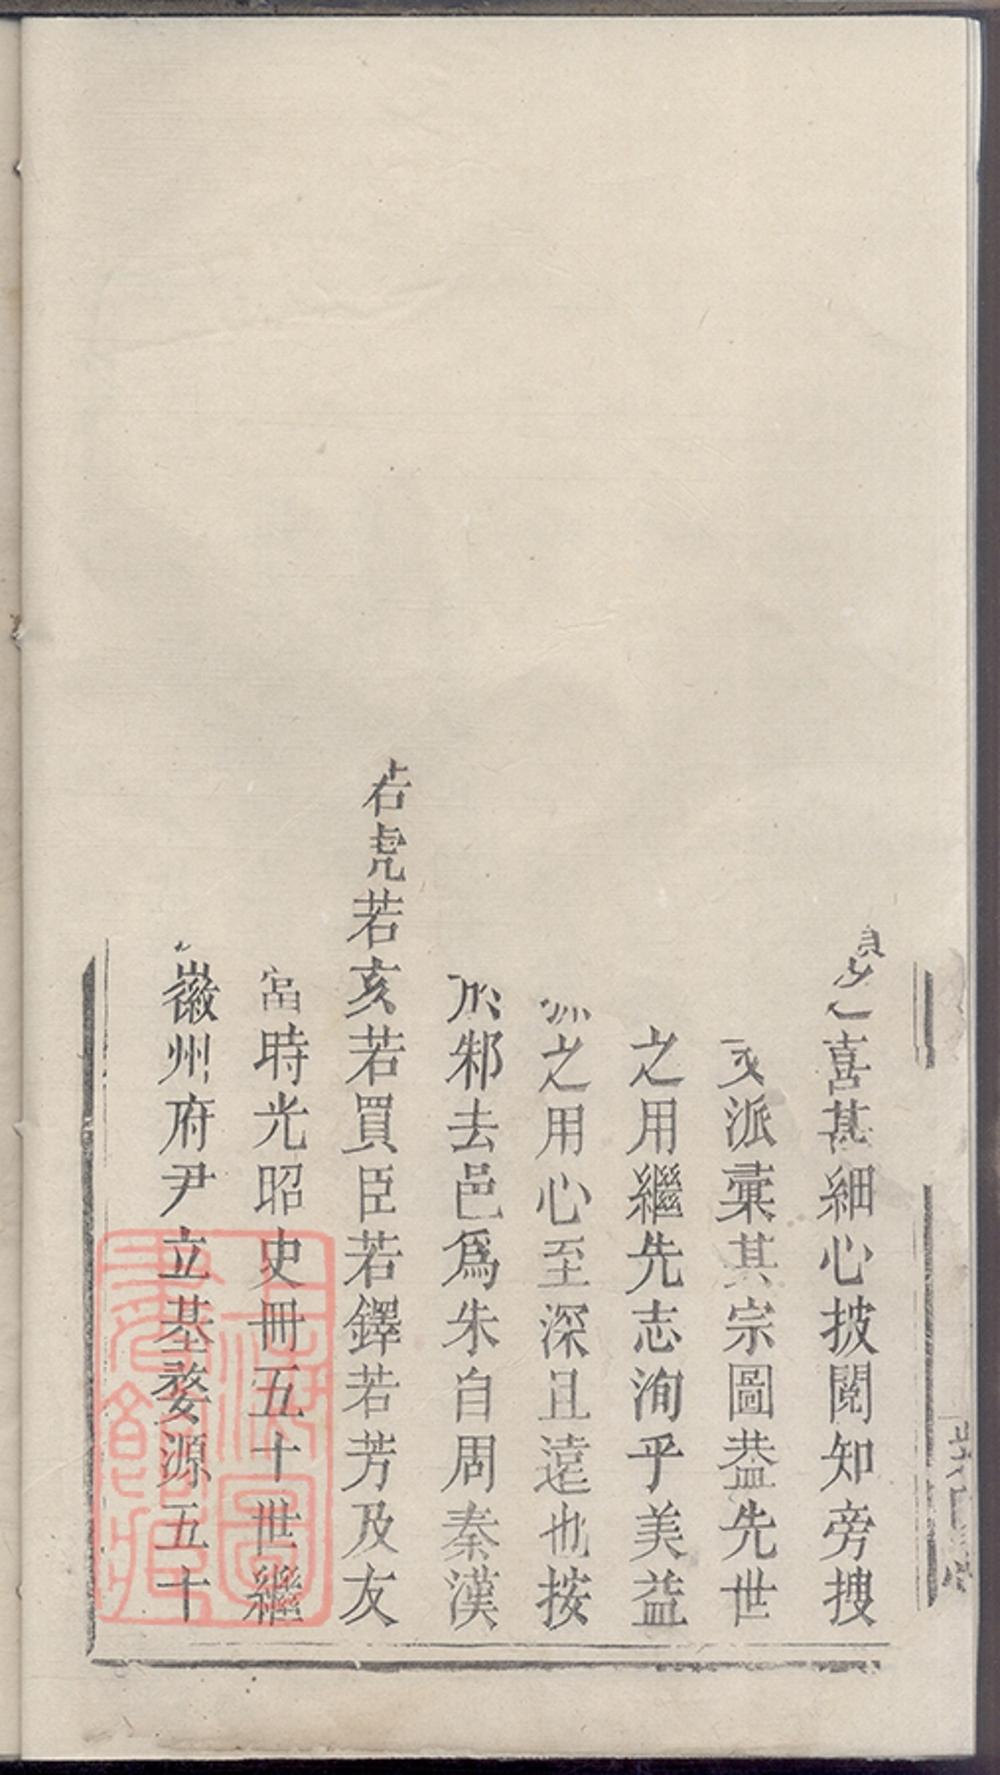 之喜甚細心披閱知旁搜
派彙其宗圖葢先世
之用繼先志洵乎美益
之用心至深且遠也按
於邾去邑爲朱自周秦漢
若虎若亥若買臣若鐸若芳及友
當時光昭史冊五十世繼
徽州府尹立基婺源五十
上海圖書館藏